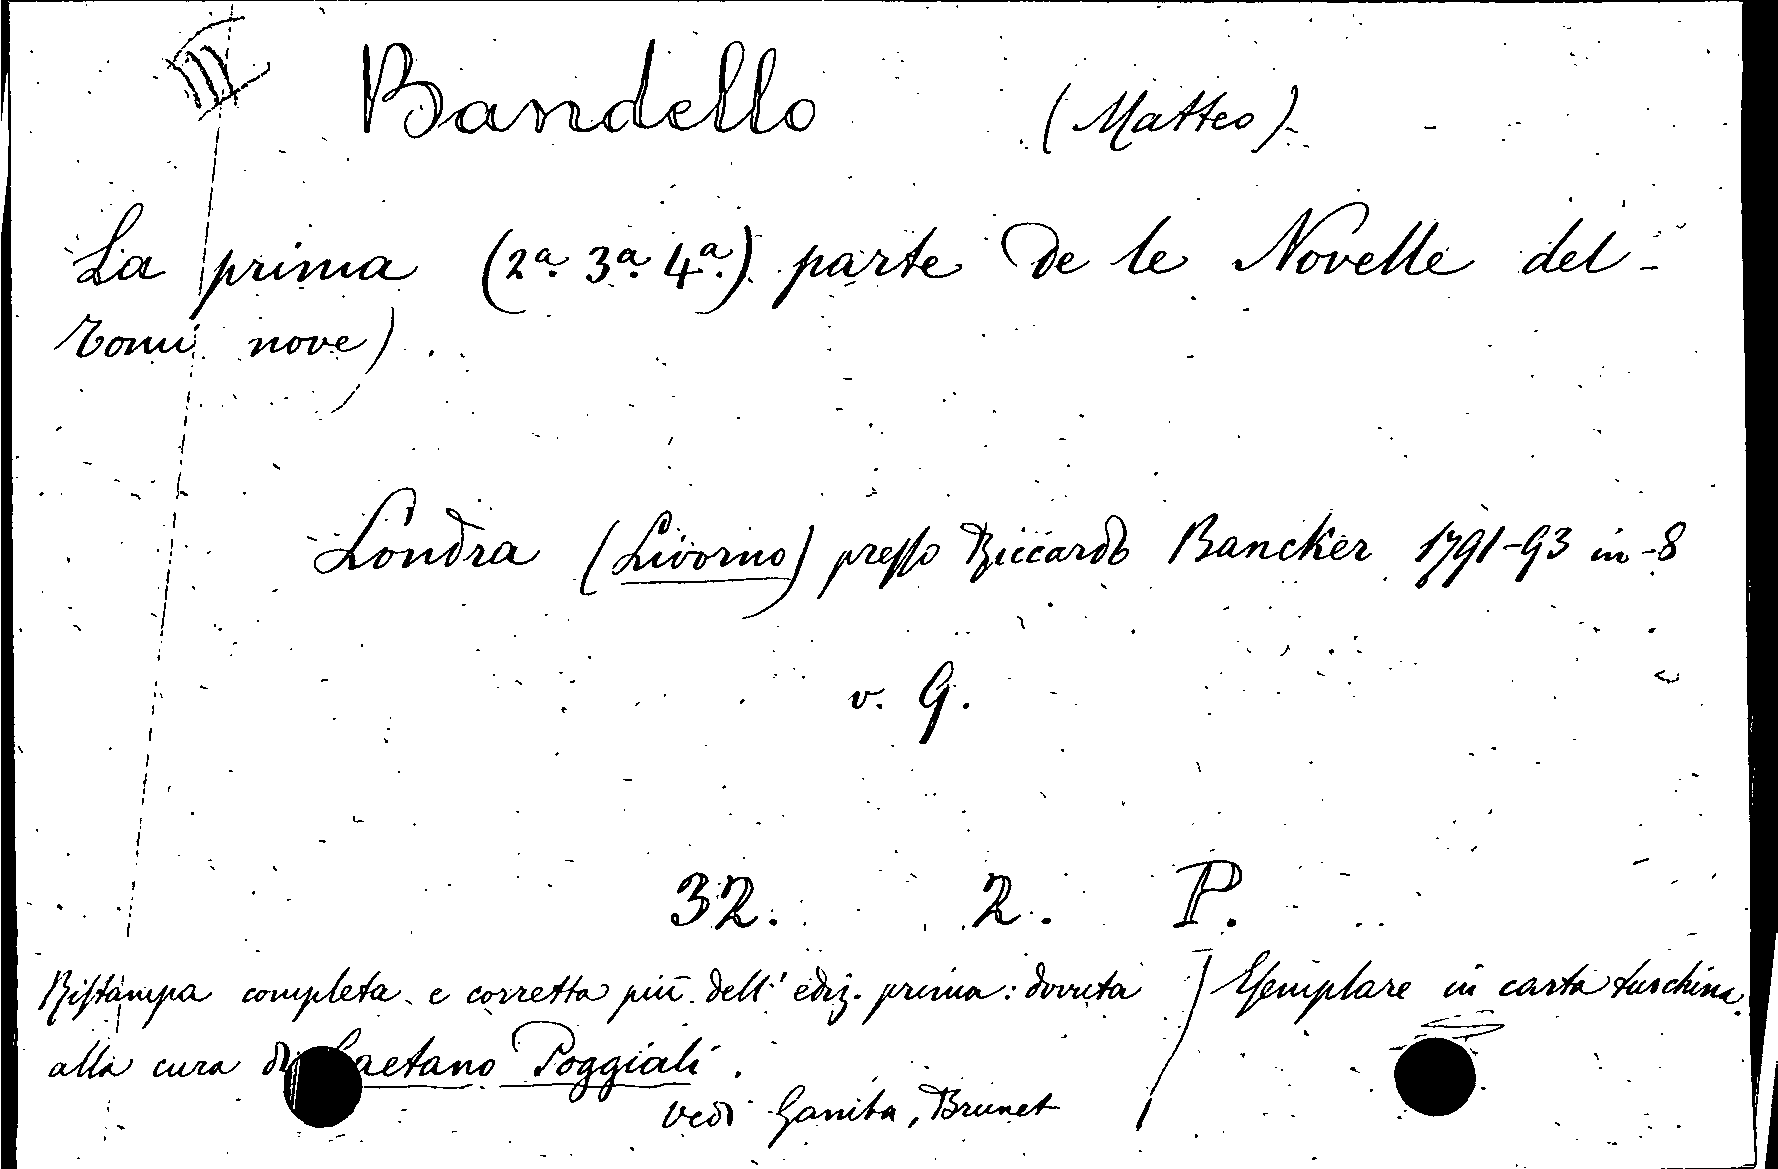 III Bandello (Matteo).
La prima (2ª. 3ª. 4ª.) parte de le Novelle del -
tomi nove).
Londra (Livorno) presso Riccardo Bancker 1791-93 in-8
v. 9.
32. 2. P.
Ristampa completa e corretta più dell' ediz. prima: dovuta
alla cura di Gaetano Poggiali.
Esemplare in carta turchina.
vedi Gamba, Brunet